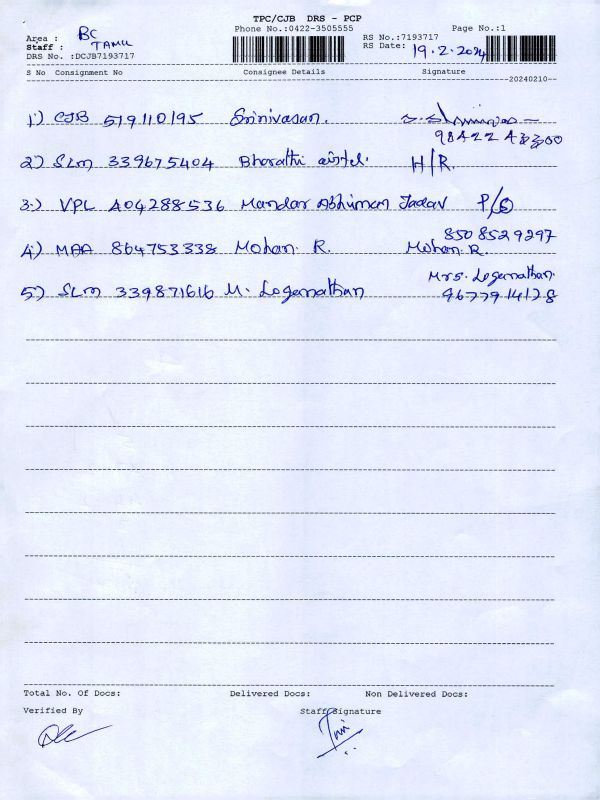 TPC/CJB DRS - PCP
Phone No.:0422-3505555
Page No.:1
Area : BC
Staff : TAMIL
DRS No. :DCJB7193717
RS No.:7193717
RS Date: 19.2.2024
S No Consignment No Consignee Details Signature
20240210
1) CJB 519110195 Srinivasan.
2) SLM 339675404 Bharathi airtel. H/R.
3) VPL A04288536 Mandar Abhiman Jadav P/S
8508529297
4) MAA 864753338 Mohan R. Mohan R.
Mrs. Loganathan
5) SLM 339871616 M. Loganathan 9677914128
Total No. Of Docs: Delivered Docs: Non Delivered Docs:
Verified By Staff Signature